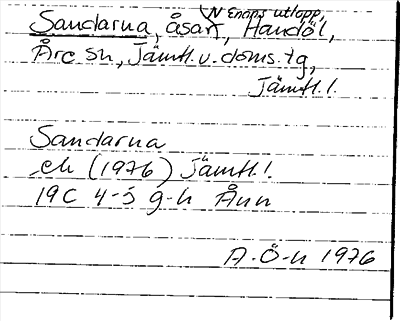 N Enaps utlopp
Sandarna, åsar, Handöl,
Åre sn, Jämtl. v. doms. tg,
Jämtl. l.
Sandarna
ek (1976) Jämtl. l.
19C 4-5 g-h Ånn
A. Ö-n 1976